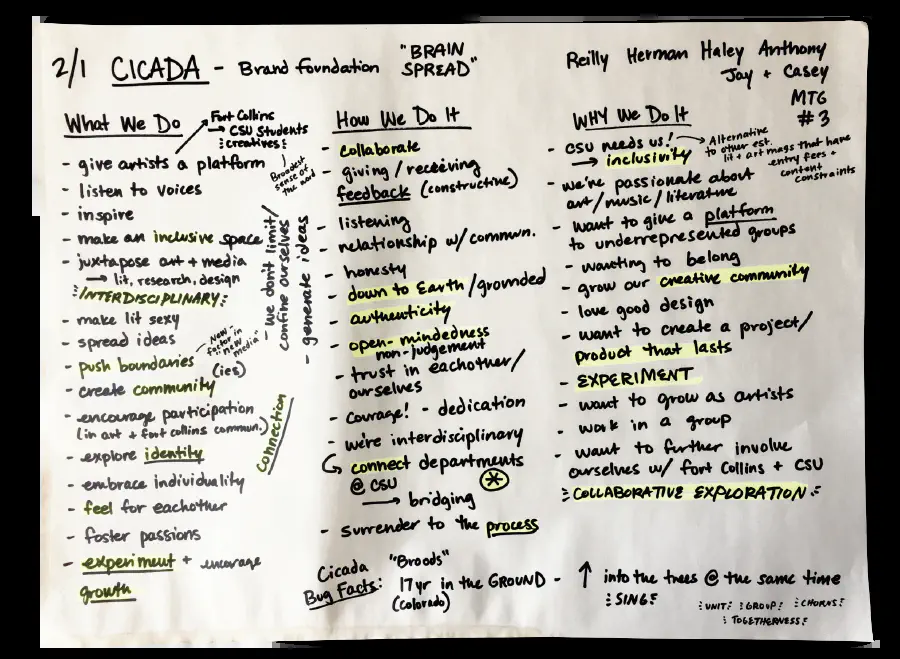 2/1 CICADA - Brand Foundation "BRAIN SPREAD"
Reilly Herman Haley Anthony
Jay + Casey
MTG
#3
What We Do
Fort Collins
→ CSU Students
creatives
Broadest
sense of
the word
- give artists a platform
- listen to voices
- inspire
- make an inclusive space
- juxtapose art + media
→ lit, research, design
INTERDISCIPLINARY
- make lit sexy
- spread ideas
- push boundaries
(ies)
New -
factor in
"new
media"
- create community
- encourage participation
(in art + fort collins commun.)
- explore identity
- embrace individuality
- feel for eachother
- foster passions
- experiment + encourage
growth
- we don't limit/
confine ourselves
- generate ideas
connection
How We Do It
- collaborate
- giving / receiving
feedback (constructive)
- listening
- relationship w/ commun.
- honesty
- down to Earth / grounded
- authenticity
- open-mindedness
non-judgement
- trust in eachother/
ourselves
- courage! - dedication
- we're interdisciplinary
connect departments
@ CSU
→ bridging
- surrender to the process
WHY We Do It
- CSU needs us!
→ inclusivity
Alternative
to other est.
lit + art mags that have
entry fees +
content
constraints
- we're passionate about
art/music/literature
- want to give a platform
to underrepresented groups
- wanting to belong
- grow our creative community
- love good design
- want to create a project/
product that lasts
- EXPERIMENT
- want to grow as artists
- work in a group
- want to further involve
ourselves w/ Fort Collins + CSU
COLLABORATIVE EXPLORATION
Cicada "Broods"
Bug Facts: 17yr in the GROUND - ↑ into the trees @ the same time
(colorado)
SING
UNIT GROUP CHORUS
TOGETHERNESS